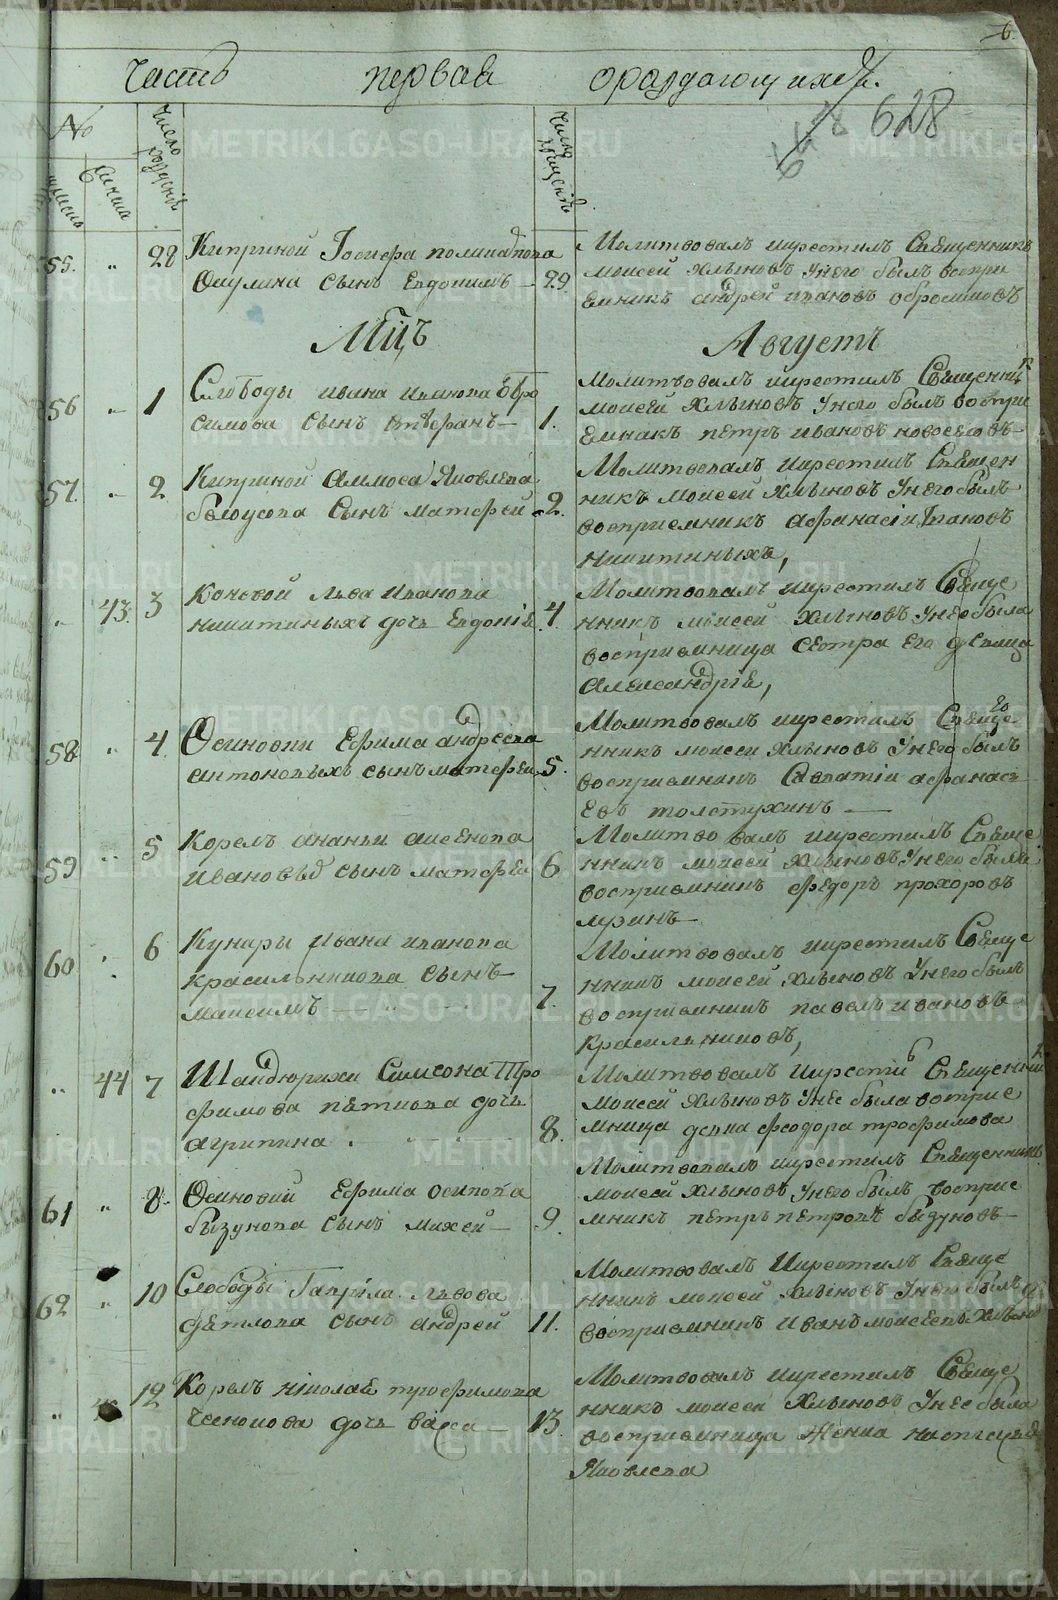 Часть первая о раждающихся.
628
№
Число рождения
Число крещения
55. " 28 Киприной Иосифа поликарпова
Окулина сынъ Евдокимъ 29
Молитвовалъ икрестилъ Священникъ
моисей Хлыновъ унего былъ воспри
емникъ андрей ивановъ обросимовъ
Мцъ Августъ
56 " 1 Слободы ивана иванова Обро
симова сынъ 1.
Молитвовалъ икрестилъ Священник
моисей Хлыновъ унего былъ воспри
емникъ петръ ивановъ новоселовъ
57. " 2 Киприной Аммоса Яковлева
белоусова Сынъ матфей 2.
Молитвовалъ икрестилъ Священ
никъ моисей Хлыновъ унего былъ
восприемникъ афанасiй Ивановъ
никитиныхъ,
" 43. 3 Коневой льва Иванова
никитиныхъ дочь Евдокiя 4
Молитвовалъ икрестилъ Свяще
нникъ моисей Хлыновъ унее была
восприемница сестра его девица
Александрiя,
58 " 4 Осиновки Ефима андреева
антоновыхъ сынъ матфей 5.
Молитвовалъ икрестилъ Свяще
нникъ моисей Хлыновъ унего былъ
восприемникъ Савватiй афанась
евъ толстухинъ
59 " 5 Корелъ ананьи аксенова
ивановыхъ сынъ матфей 6
Молитвовалъ икрестилъ Свяще
нникъ моисей Хлыновъ унего былъ
восприемникъ федоръ прохоровъ
60 " 6 Кунары ивана иванова
красильникова сынъ
максимъ 7.
Молитвовалъ икрестилъ Свяще
нникъ моисей Хлыновъ унего былъ
восприемникъ павелъ ивановъ
красильниковъ,
" 44 7 Шандюрихи Симеона Тро
фимова пяткова дочь
агрипина 8.
Молитвовалъ икрестилъ Священник
моисей Хлыновъ унее была восприе
мница девка феодора трофимова
61 " 8. Осиновки Ефима осипова
бызунова сынъ михей 9.
Молитвовалъ икрестилъ Священникъ
моисей Хлыновъ унего былъ восприе
мникъ петръ петровъ бызуновъ
62 " 10 Слободы Гаврiла львова
Светлова сынъ андрей 11.
Молитвовалъ икрестилъ Свяще
нникъ моисей Хлыновъ унего былъ
восприемникъ иванъ моисеевъ
" 12 Корелъ нiколая трофимова
дочь васса 13.
Молитвовалъ икрестилъ Свяще
нникъ моисей Хлыновъ унее была
восприемница жена настасья
Яковлева
METRIKI.GASO-URAL.RU